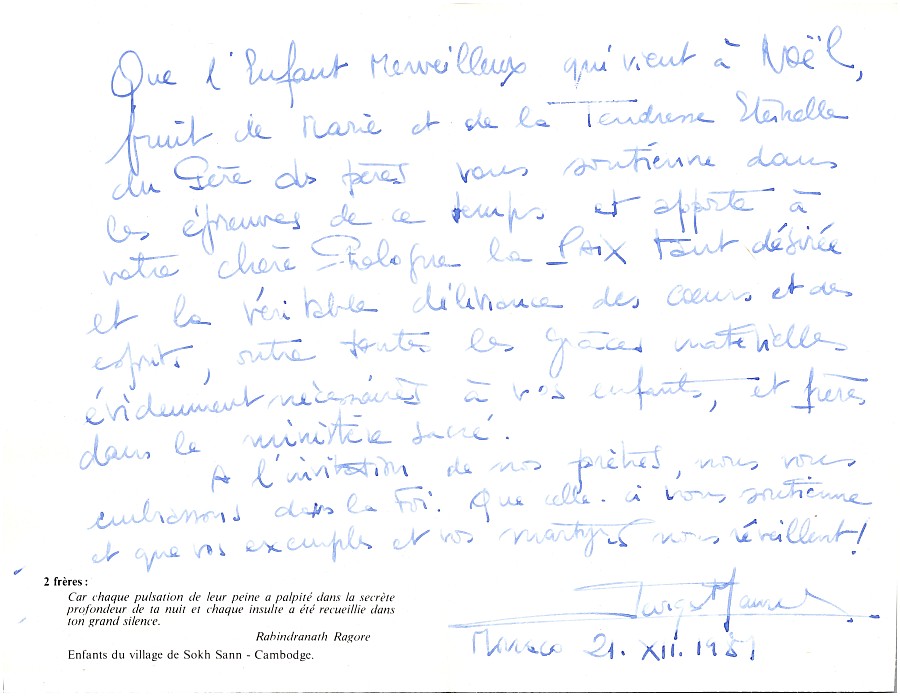 Que l'Enfant Merveilleux qui vient à Noël,
fruit de Marie et de la Tendresse Eternelle
du Père des pères vous soutienne dans
les épreuves de ce temps et apporte à
votre chère Pologne la PAIX tant désirée
et la véritable délivrance des cœurs et des
esprits, outre toutes les grâces matérielles
évidemment nécessaires à vos enfants, et frères
dans le ministère sacré.
A l'invitation de nos prêtres, nous vous
embrassons dans la Foi. Que celle-ci vous soutienne
et que vos exemples et vos martyrs nous réveillent!
2 frères :
Car chaque pulsation de leur peine a palpité dans la secrète
profondeur de ta nuit et chaque insulte a été recueillie dans
ton grand silence.
Rabindranath Ragore
Enfants du village de Sokh Sann - Cambodge.
Monaco 21. XII. 1981